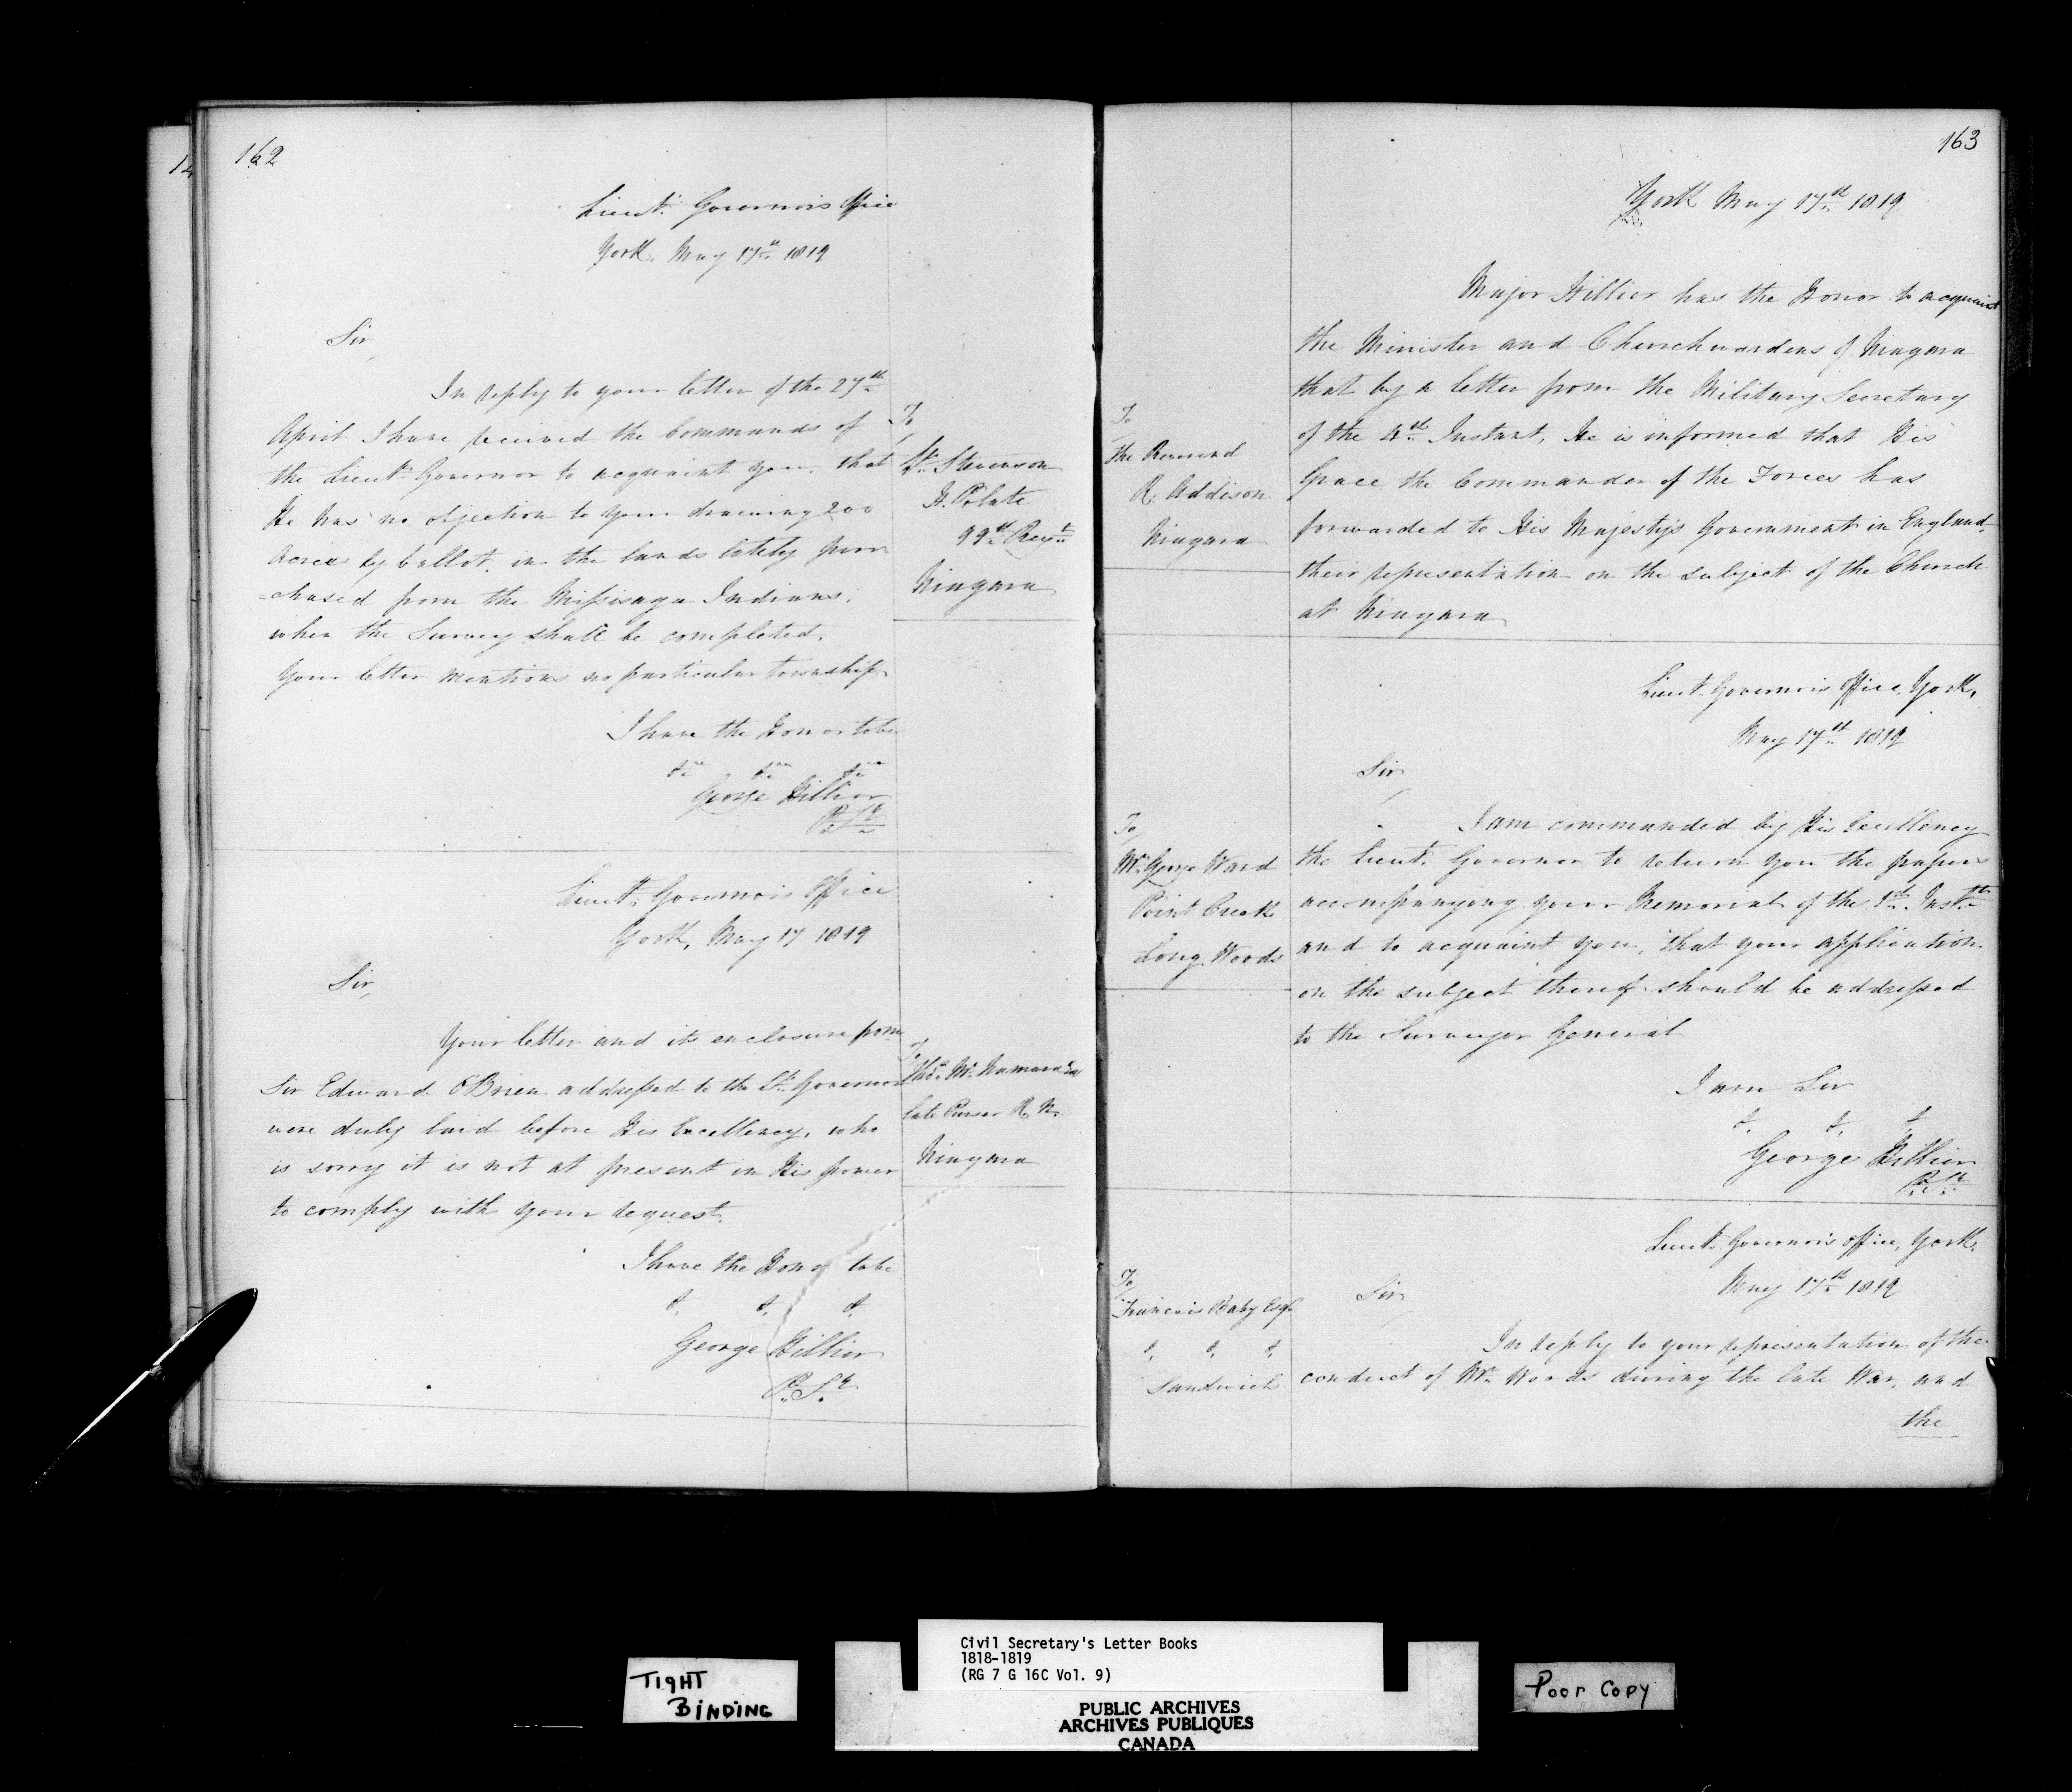 162
Lieut. Governors Office
York, May 17th 1819
Sir,
In reply to your letter of the 27th
April I have received the Commands of
the Lieut. Governor to acquaint you, that
He has no objection to your drawing 200
Acres by ballot, in the lands lately pur
-chased from the Missisaga Indians,
when the Survey shall be completed.
Your letter mentions no particular township
I have the Honor to be
&c &c &c
George Hillier
P. Sy
To
Lt. Stevenson
H. P. late
99th Regt
Niagara
Lieut. Governors Office
York, May 17 1819
Sir,
Your letter and its enclosure from
Sir Edward O'Brien addressed to the Lt. Governor
were duly laid before His Excellency, who
is sorry it is not at present in His power
to comply with your request.
I have the Honor to be
&. &. &.
George Hillier
P. Sy
To
Thos. McNamara Esq
late Purser R. N.
Niagara
163
York May 17th 1819
Major Hillier has the Honor to acquaint
the Minister and Churchwardens of Niagara
that by a letter from the Military Secretary
of the 4th Instant, He is informed that His
Grace the Commander of the Forces has
forwarded to His Majesty's Government in England
their representation on the subject of the Church
at Niagara
To
The Reverend
R. Addison
Niagara
Lieut. Governors Office, York,
May 17th 1819
Sir
I am commanded by His Excellency
the Lieut. Governor to return you the papers
accompanying your Memorial of the 1st Inst.
and to acquaint you, that your application
on the subject thereof should be addressed
to the Surveyor General
I am Sir
&. &. &.
George Hillier
P. Sy
To
Mr. George Ward
Point Creek
Long Woods
Lieut. Governors Office, York,
May 17th 1819
Sir
In reply to your representation of the
conduct of Mr. Woods during the late War, and
the
To
Francois Baby Esqr
&. &. &.
Sandwich
TIGHT
BINDING
Civil Secretary's Letter Books
1818-1819
(RG 7 G 16C Vol. 9)
PUBLIC ARCHIVES
ARCHIVES PUBLIQUES
CANADA
Poor Copy